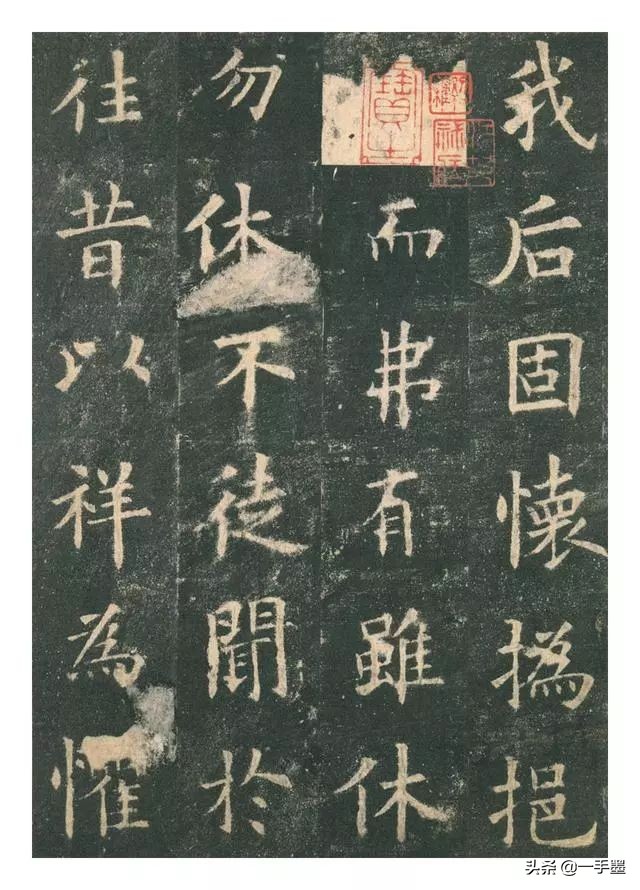 我后固懷撝挹
而弗有雖休
勿休不徒聞於
往昔以祥為懼
头条 @一手墨